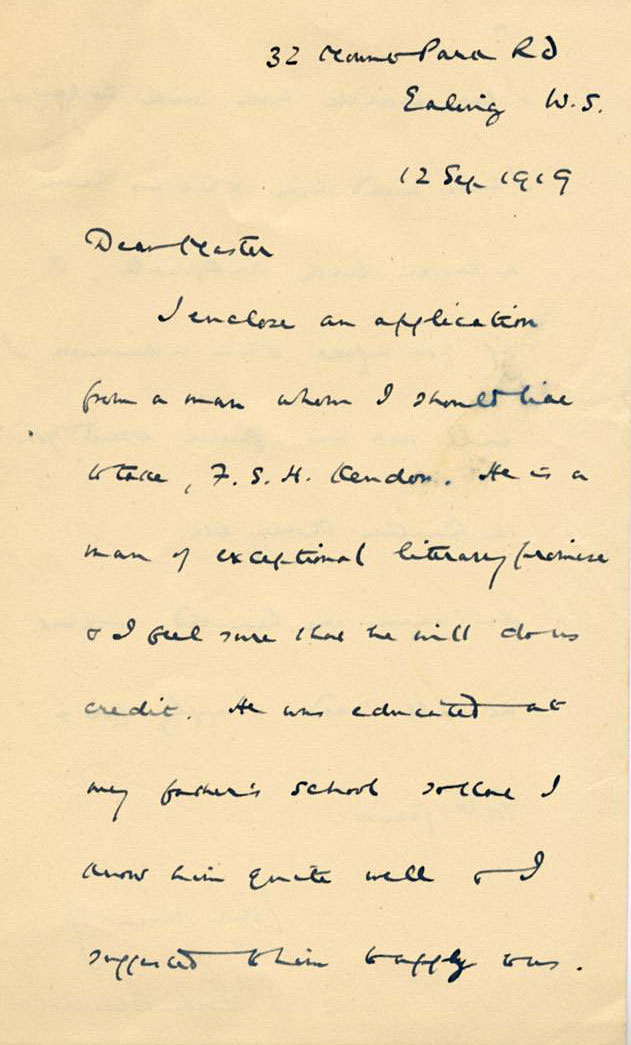 32 Mount Park Rd
Ealing W.5.
12 Sep 1919
Dear Master
I enclose an application
from a man whom I should like
to take, F. S. H. Kendon. He is a
man of exceptional literary promise
& I feel sure that he will do us
credit. He was educated at
my father's school so that I
know him quite well & I
suggested to him to apply to us.